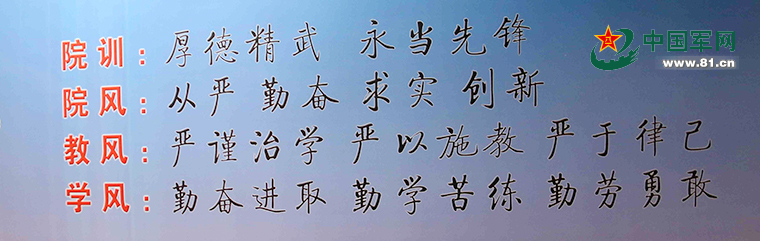 院训：厚德精武 永当先锋
院风：从严 勤奋 求实 创新
教风：严谨治学 严以施教 严于律己
学风：勤奋进取 勤学苦练 勤劳勇敢
中国军网
www.81.cn